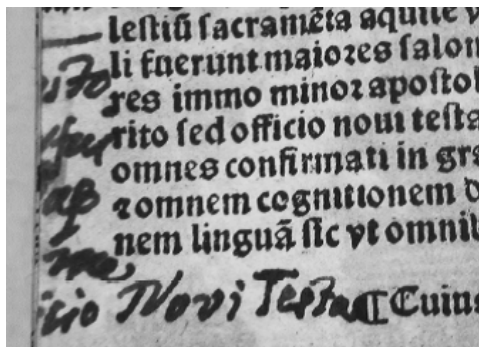 lestiū sacramēta aquile
li fuerunt maiores salom
res immo minor apostol
rito sed officio noui testa
omnes confirmati in gra
⁊omnem cognitionem d
nem linguā sic vt omnib
Novi Testa ¶Cuius